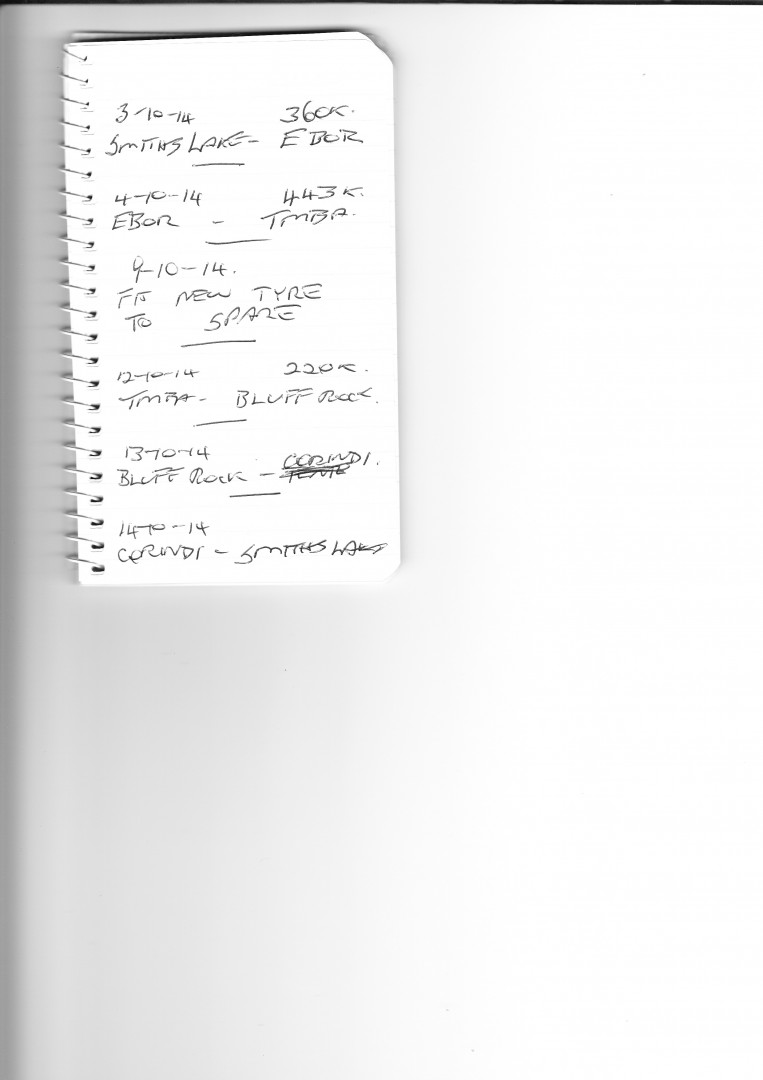 3-10-14 360K.
SMITHS LAKE - EBOR
4-10-14 443K.
EBOR - TMBA.
9-10-14.
FIT NEW TYRE
TO SPARE
12-10-14 220K.
TMBA - BLUFF ROCK.
13-10-14
BLUFF ROCK - CORINDI.
14-10-14
CORINDI - SMITHS LAKE